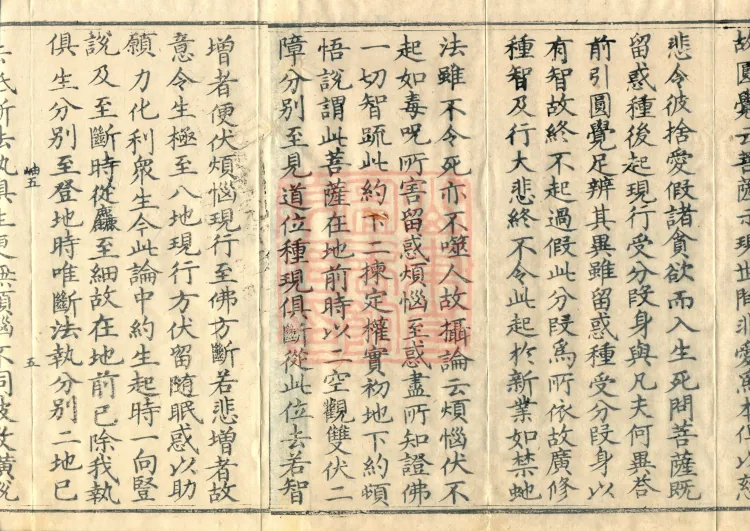 故圓覺云菩薩示現世間非愛爲本但以慈
悲令彼捨愛假諸貪欲而入生死問菩薩既
留惑種後起現行受分段身與凡夫何異荅
前引圓覺足辨其異雖留惑種受分段身以
有智故終不起過假此分段爲所依故廣修
種智及行大悲終不令此起於新業如禁虵
法雖不令死亦不噬人故攝論云煩惱伏不
起如毒呪所害留惑煩惱至惑盡所知證佛
一切智疏此約下二揀定權實初地下約頓
悟說謂此菩薩在地前時以二空觀雙伏二
障分別至見道位種現俱斷從此位去若智
增者便伏煩惱現行至佛方斷若悲增者故
意令生極至八地現行方伏留隨眠惑以助
願力化利衆生今此論中約生起時一向豎
說及至斷時從麤至細故在地前已除我執
俱生分別至登地時唯斷法執分別二地已
岫五
五
去
所法執俱生更無煩惱不同彼故廣說